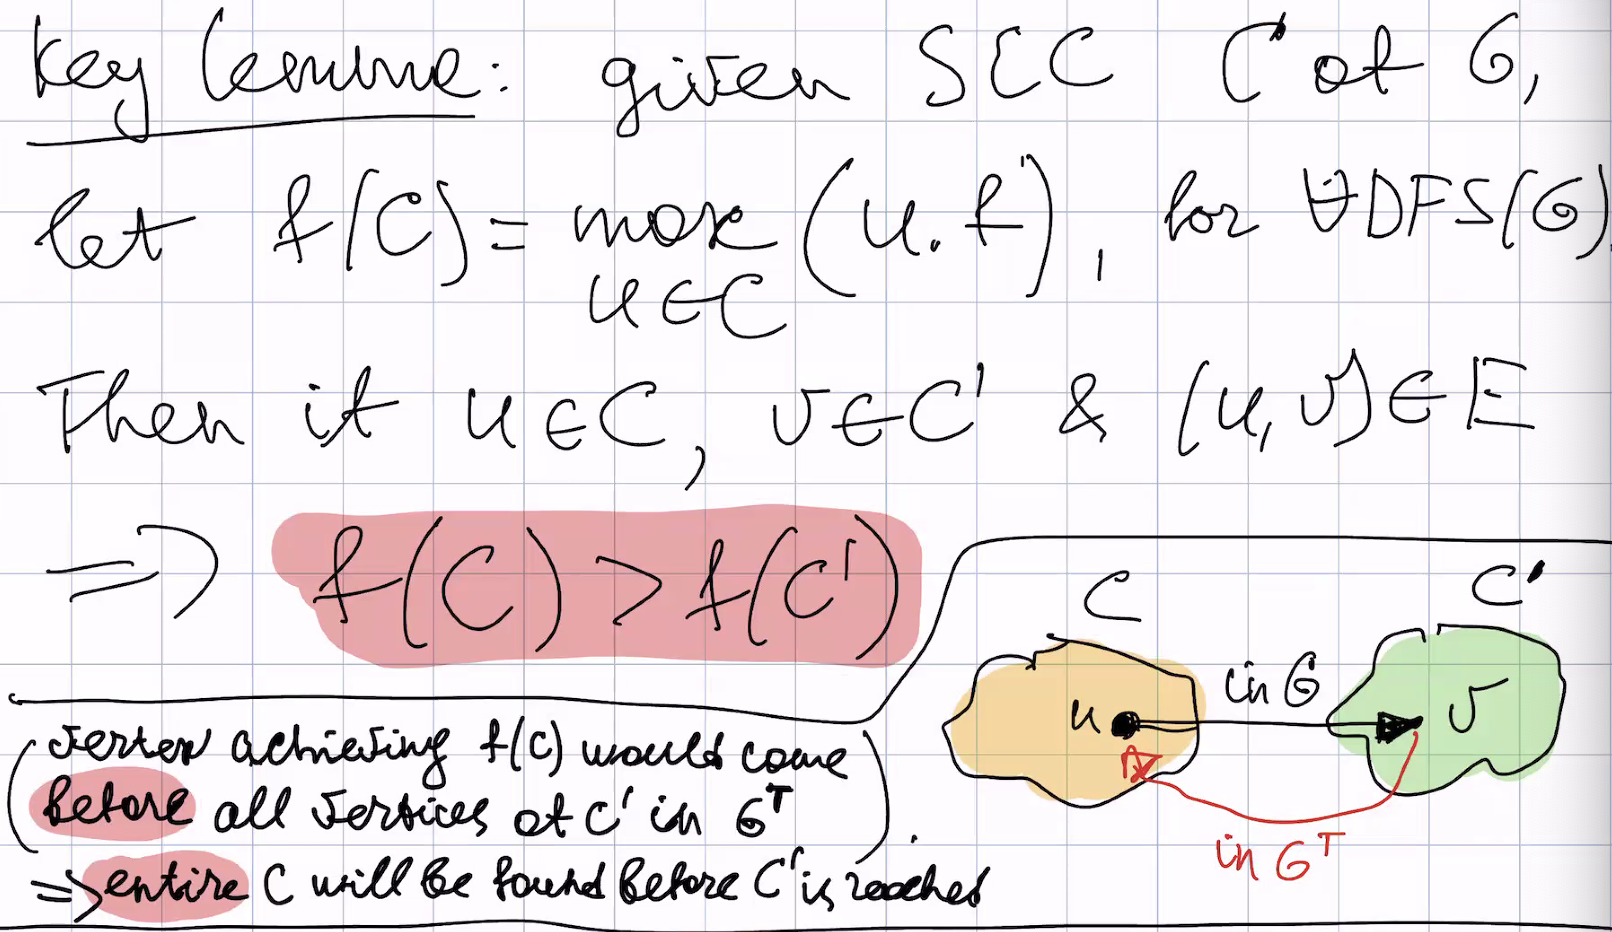 Key lemma: given SCC C of G,
let f(C) = max (u.f), for ∀DFS(G).
u∈C
Then if u∈C, v∈C' & (u,v)∈E
=> f(C) > f(C')
C C'
u in G v
in Gᵀ
(vertex achieving f(C) would come
before all vertices of C' in Gᵀ)
=> entire C will be found before C' is reached